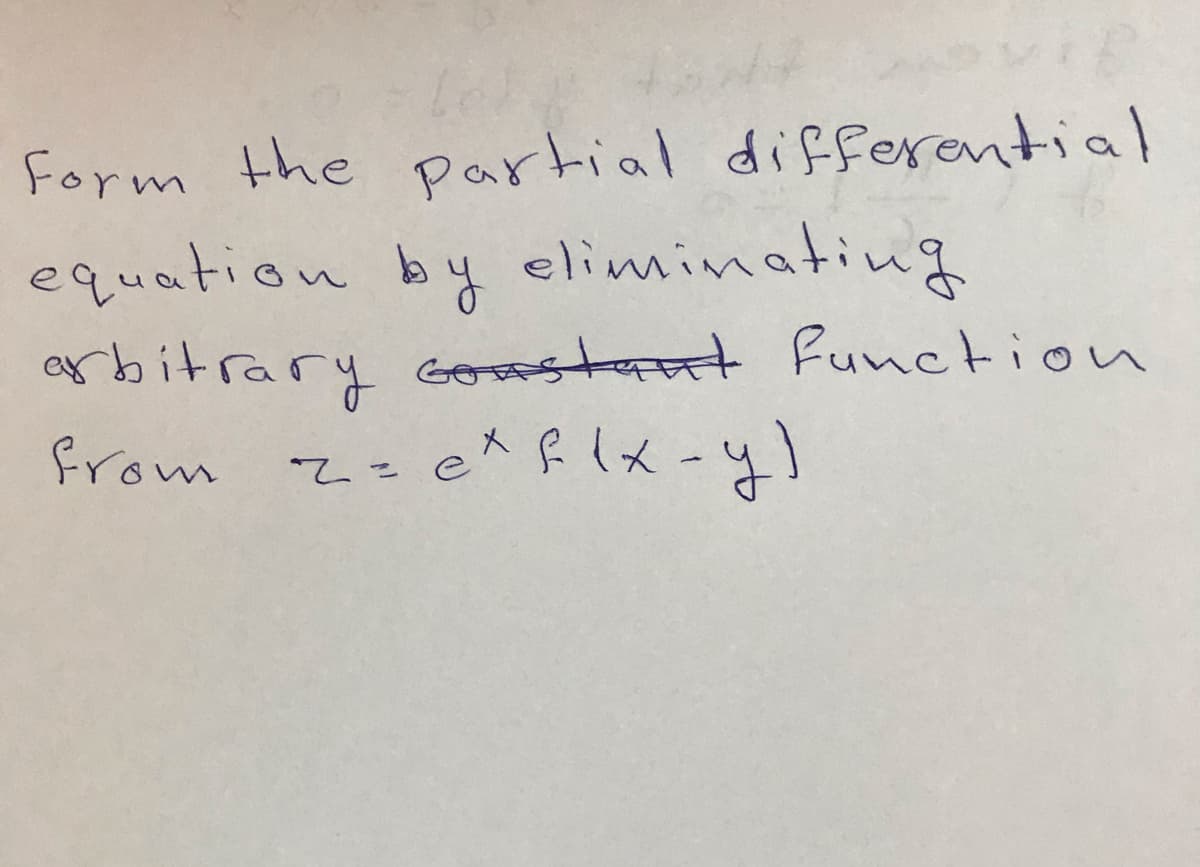 Form the partial differential
equation by eliminating
arbitrary ~~constant~~ function
from z = e^x f(x-y)